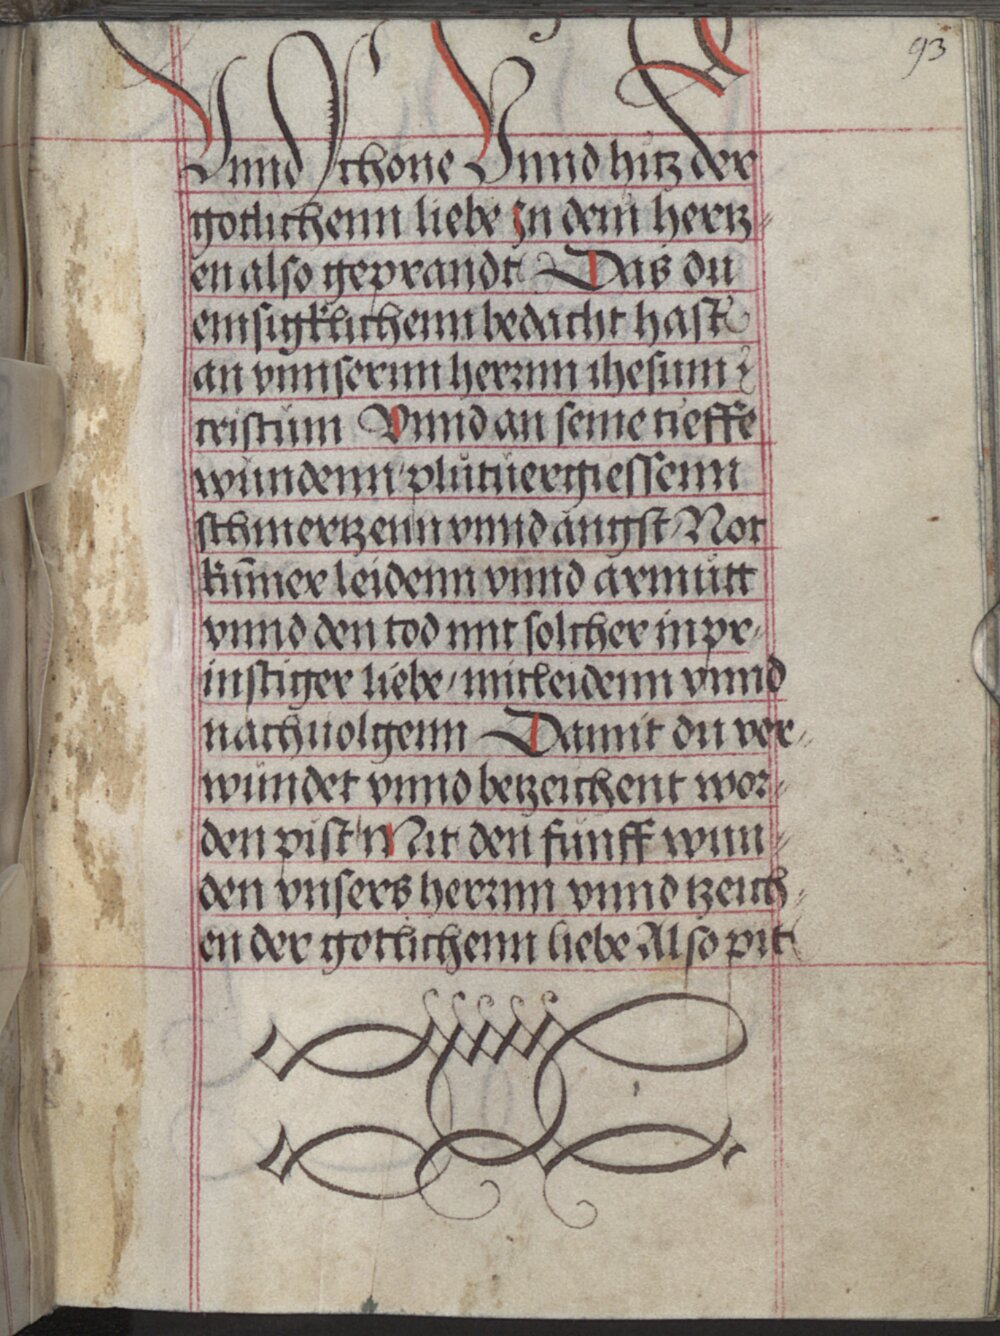 93
Vnnd schone Vnnd hitz der
gotlichenn liebe jn dem hertz„
en also geprandt Das du
emsigklichenn bedacht hast
an vnnserrnn herrnn ihesum
cristum Vnnd an seine tieffe
wundenn plutuergiessenn
schmertzenn vnnd angst / Not
kum̄er leidenn vnnd armutt
vnnd den tod mit solcher inpr„
instiger liebe / mitleidenn vnnd
nachuolgenn Damit du ver„
wundet vnnd betzeichent wor„
den pist Mit den funff wun„
den vnsers herrnn vnnd tzeich„
en der gotlichenn liebe Also pit